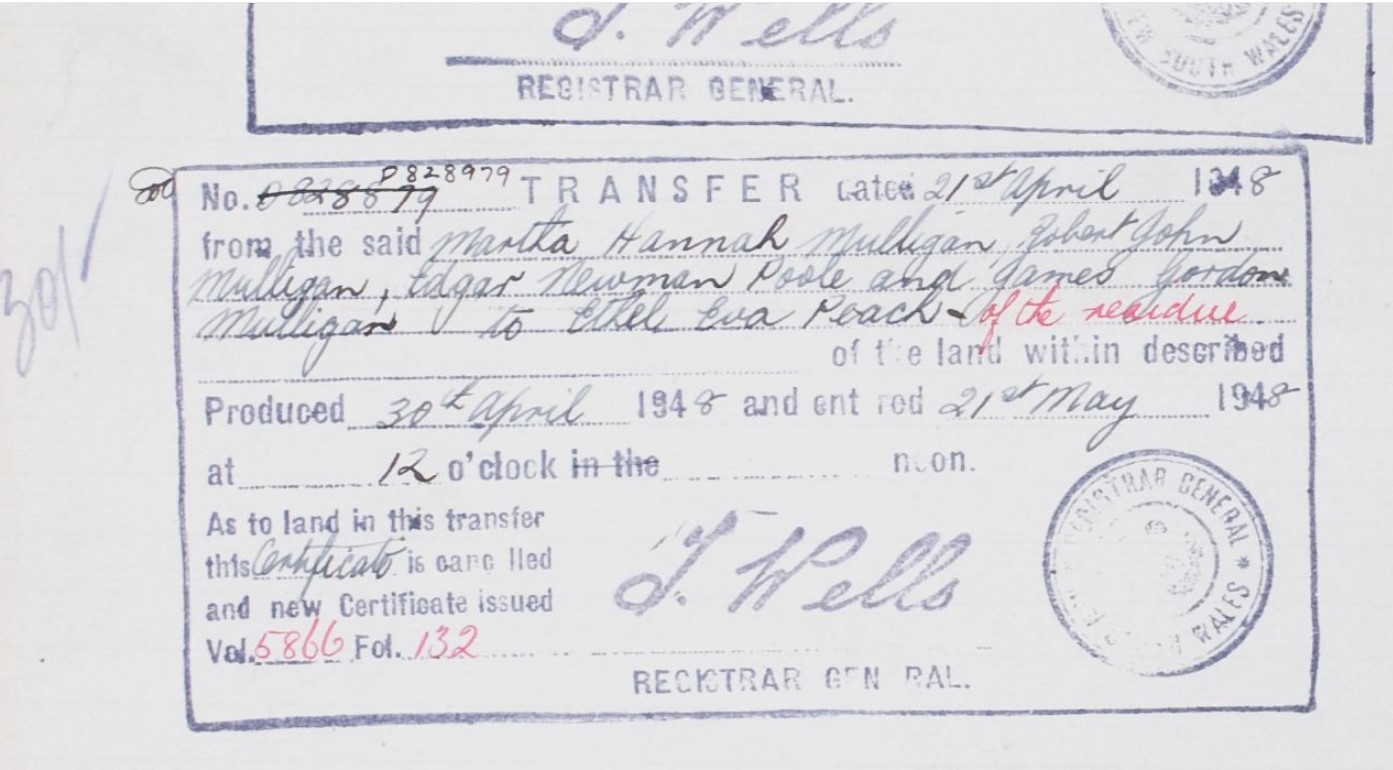 J. Wells
REGISTRAR GENERAL.
SOUTH WALES
No. D828879 D828979 TRANSFER dated 21st April 1948
from the said Martha Hannah Mulligan, Robert John
Mulligan, Edgar Newman Poole and James Gordon
Mulligan to Ethel Eva Peach of the residue
of the land within described
Produced 30th April 1948 and entered 21st May 1948
at 12 o'clock in the noon.
30/-
As to land in this transfer
this Certificate is cancelled
and new Certificate issued
Vol. 5866 Fol. 132
J. Wells
REGISTRAR GENERAL.
REGISTRAR GENERAL * WALES